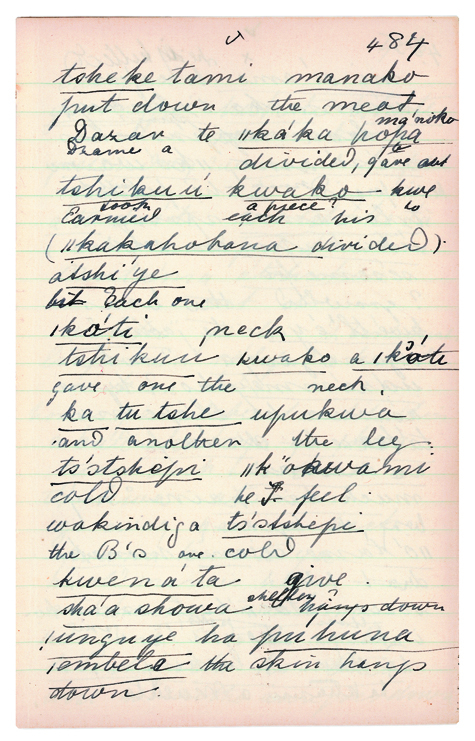 484
tsheke tami manako
put down the meat
ma'noko
Dazar te ǁkáka popa
Dzame a divided, gave out
tshikuú kwako kwe
soon a piece? to
Earmed each his
(ǁkakahobana divided).
atshi ye
bit Each one
ǀkáti neck
tshikuu kwako a ǀkáti
gave one the neck
ka tu tshe upukwa
and another the leg
ts'stshepi ǁk"okwami
cold he I feel.
wakindiga tsstshepi
the B's are cold
kwená ta give.
sha'a showa shelter hangs down
ǀunguye ha puhuna
ǀembela the skin hangs
down.